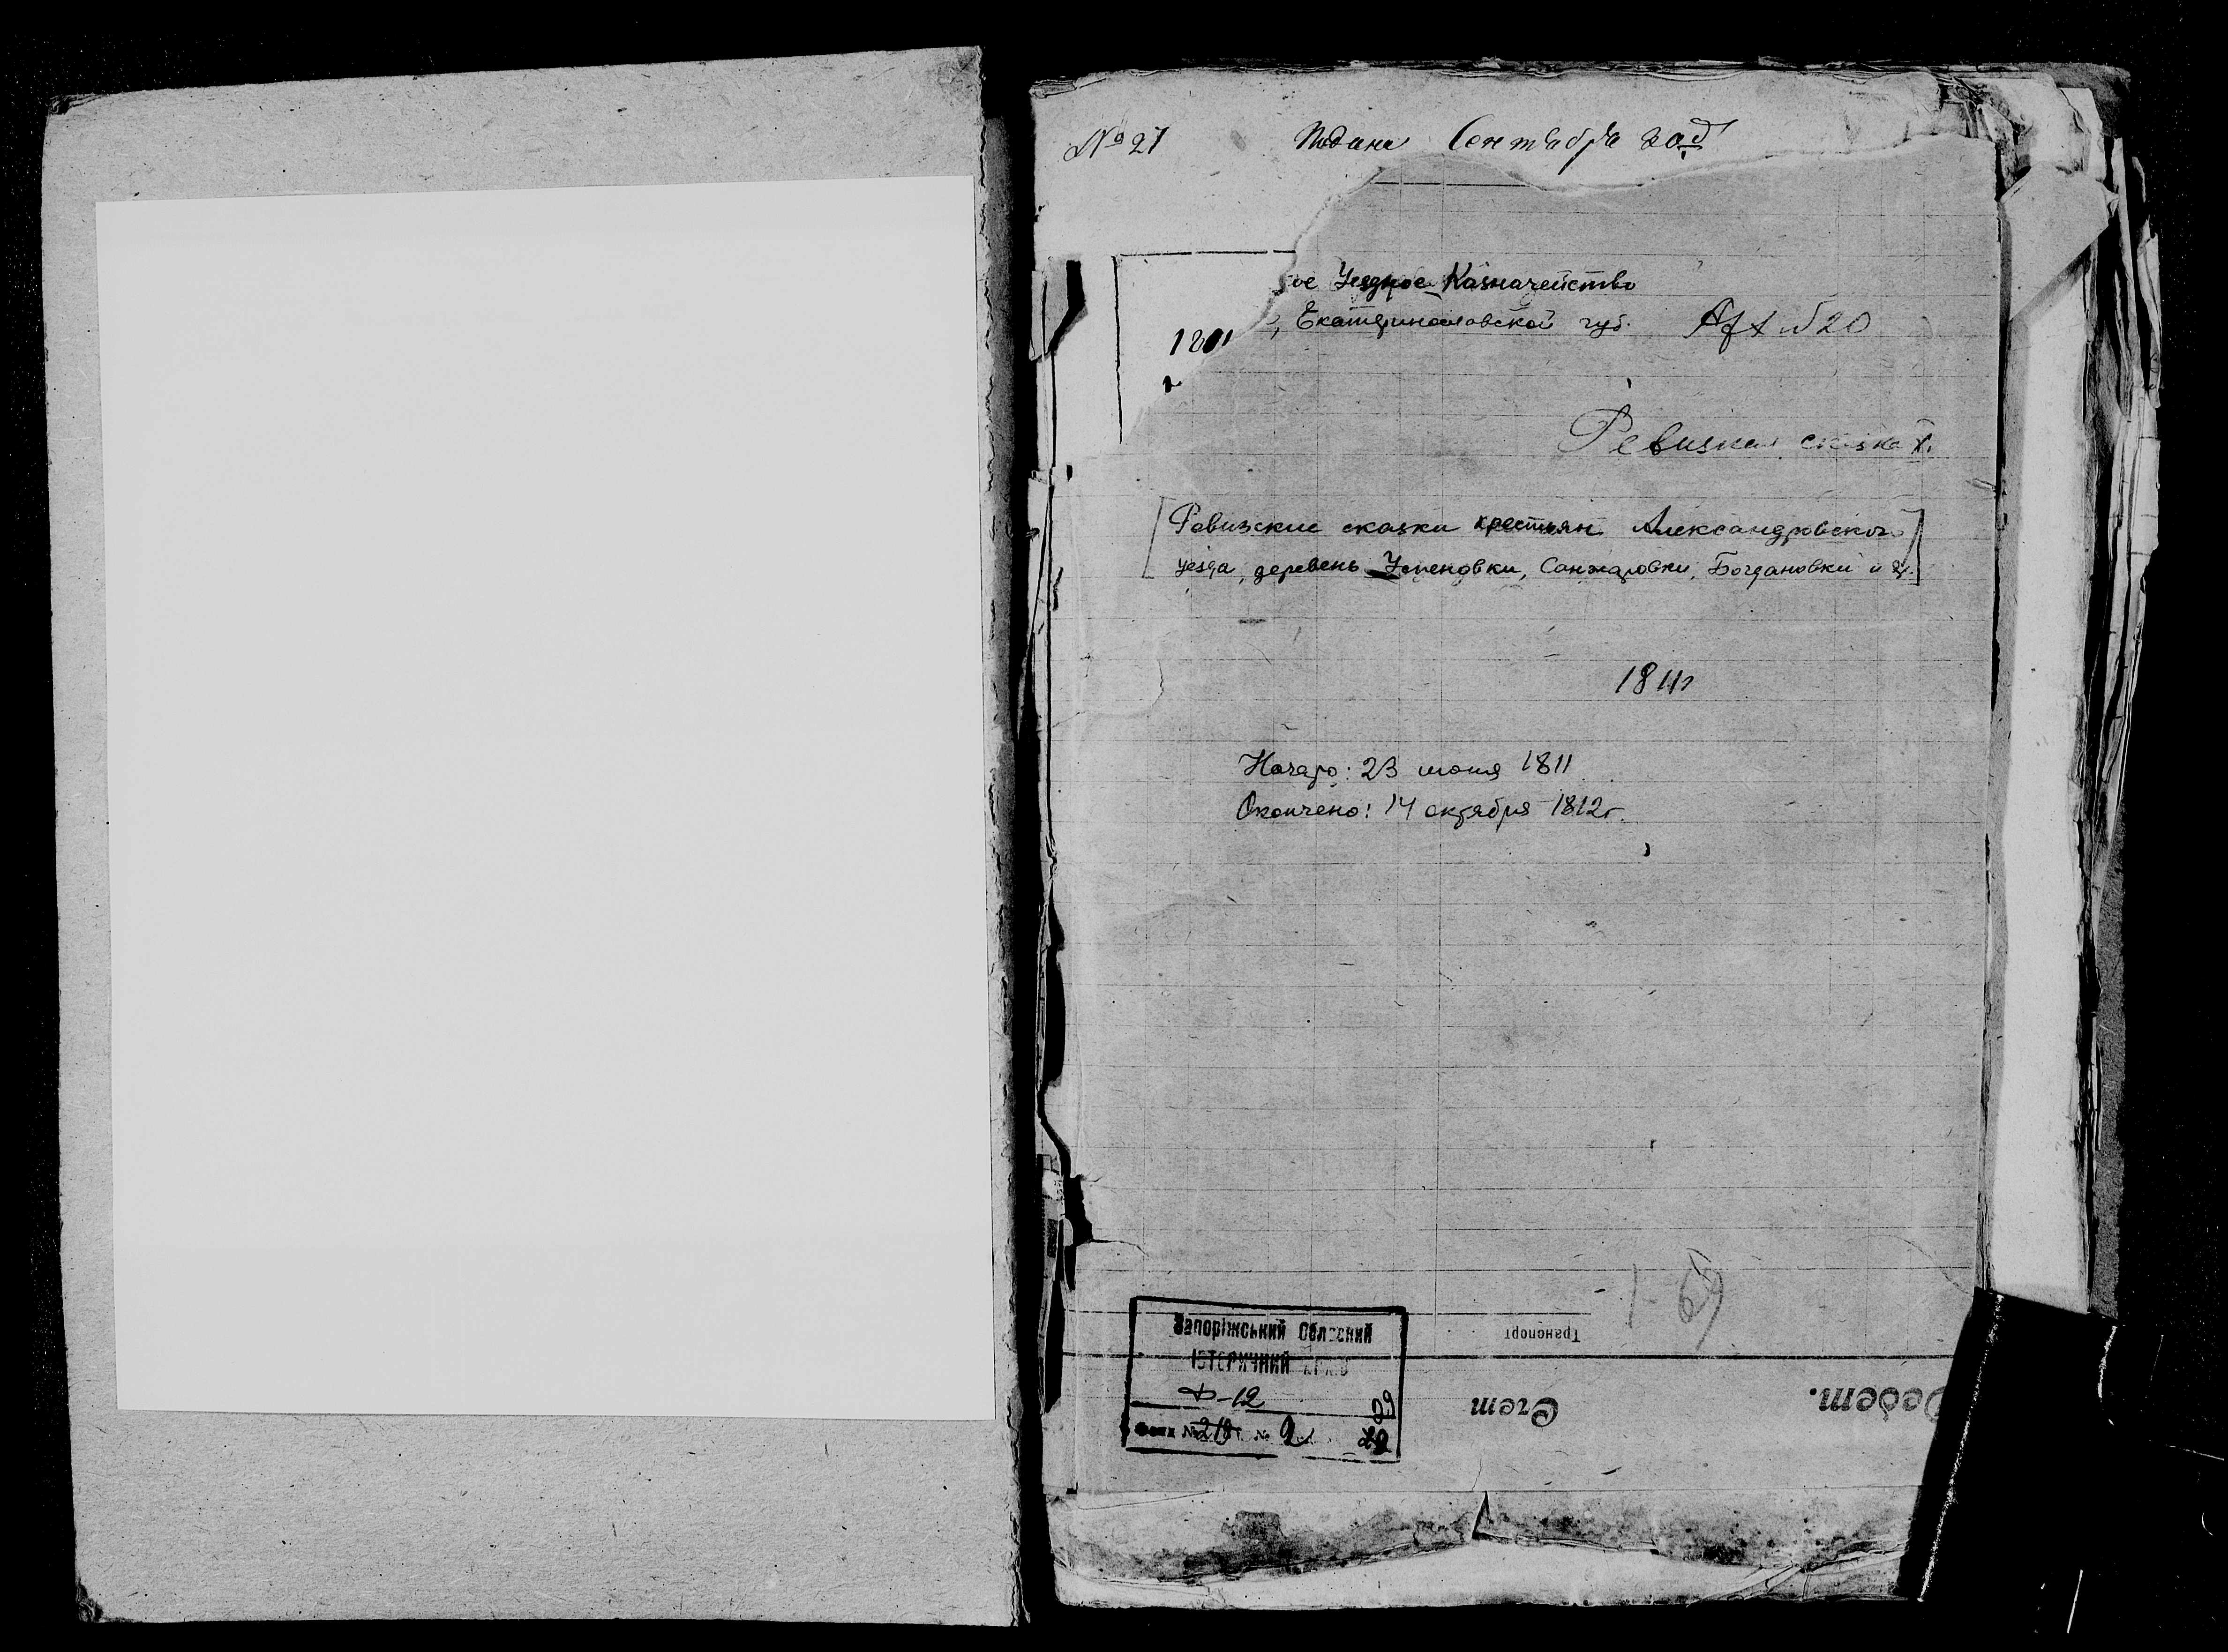 № 21 Подана Сентября 20д
ое Уездное Казначейство
Екатеринославской губ. № 20
Ревизкая сказка
[Ревизские сказки крестьян Александровского
уезда, деревень Успеновки, Санжаровки, Богдановки и др.]
1811г
Начато: 23 июня 1811
Окончено: 14 октября 1812г.
1-69
Транспорт
Запоріжський Обласний
Історичний Архів
Ф-12
Фонд № №
Счет
Дебет.